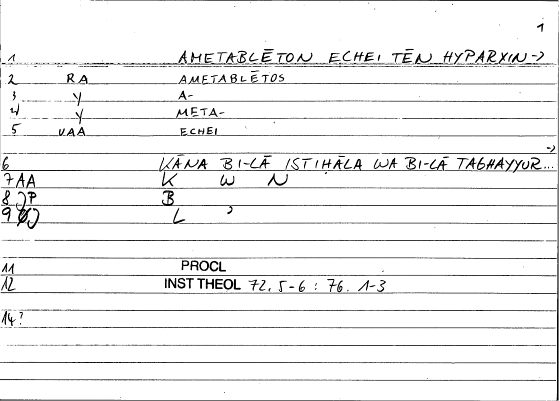 1
1 AMETABLĒTON ECHEI TĒN HYPARXIN->
2 RA AMETABLĒTOS
3 Y A-
4 Y META-
5 VAA ECHEI
->
6 KĀNA BI-LĀ ISTIHĀLA WA BI-LĀ TAGHAYYUR...
7 AA K W N
8 JP B
9 L ʾ
11 PROCL
12 INST THEOL 72. 5-6 : 76. 1-3
14?